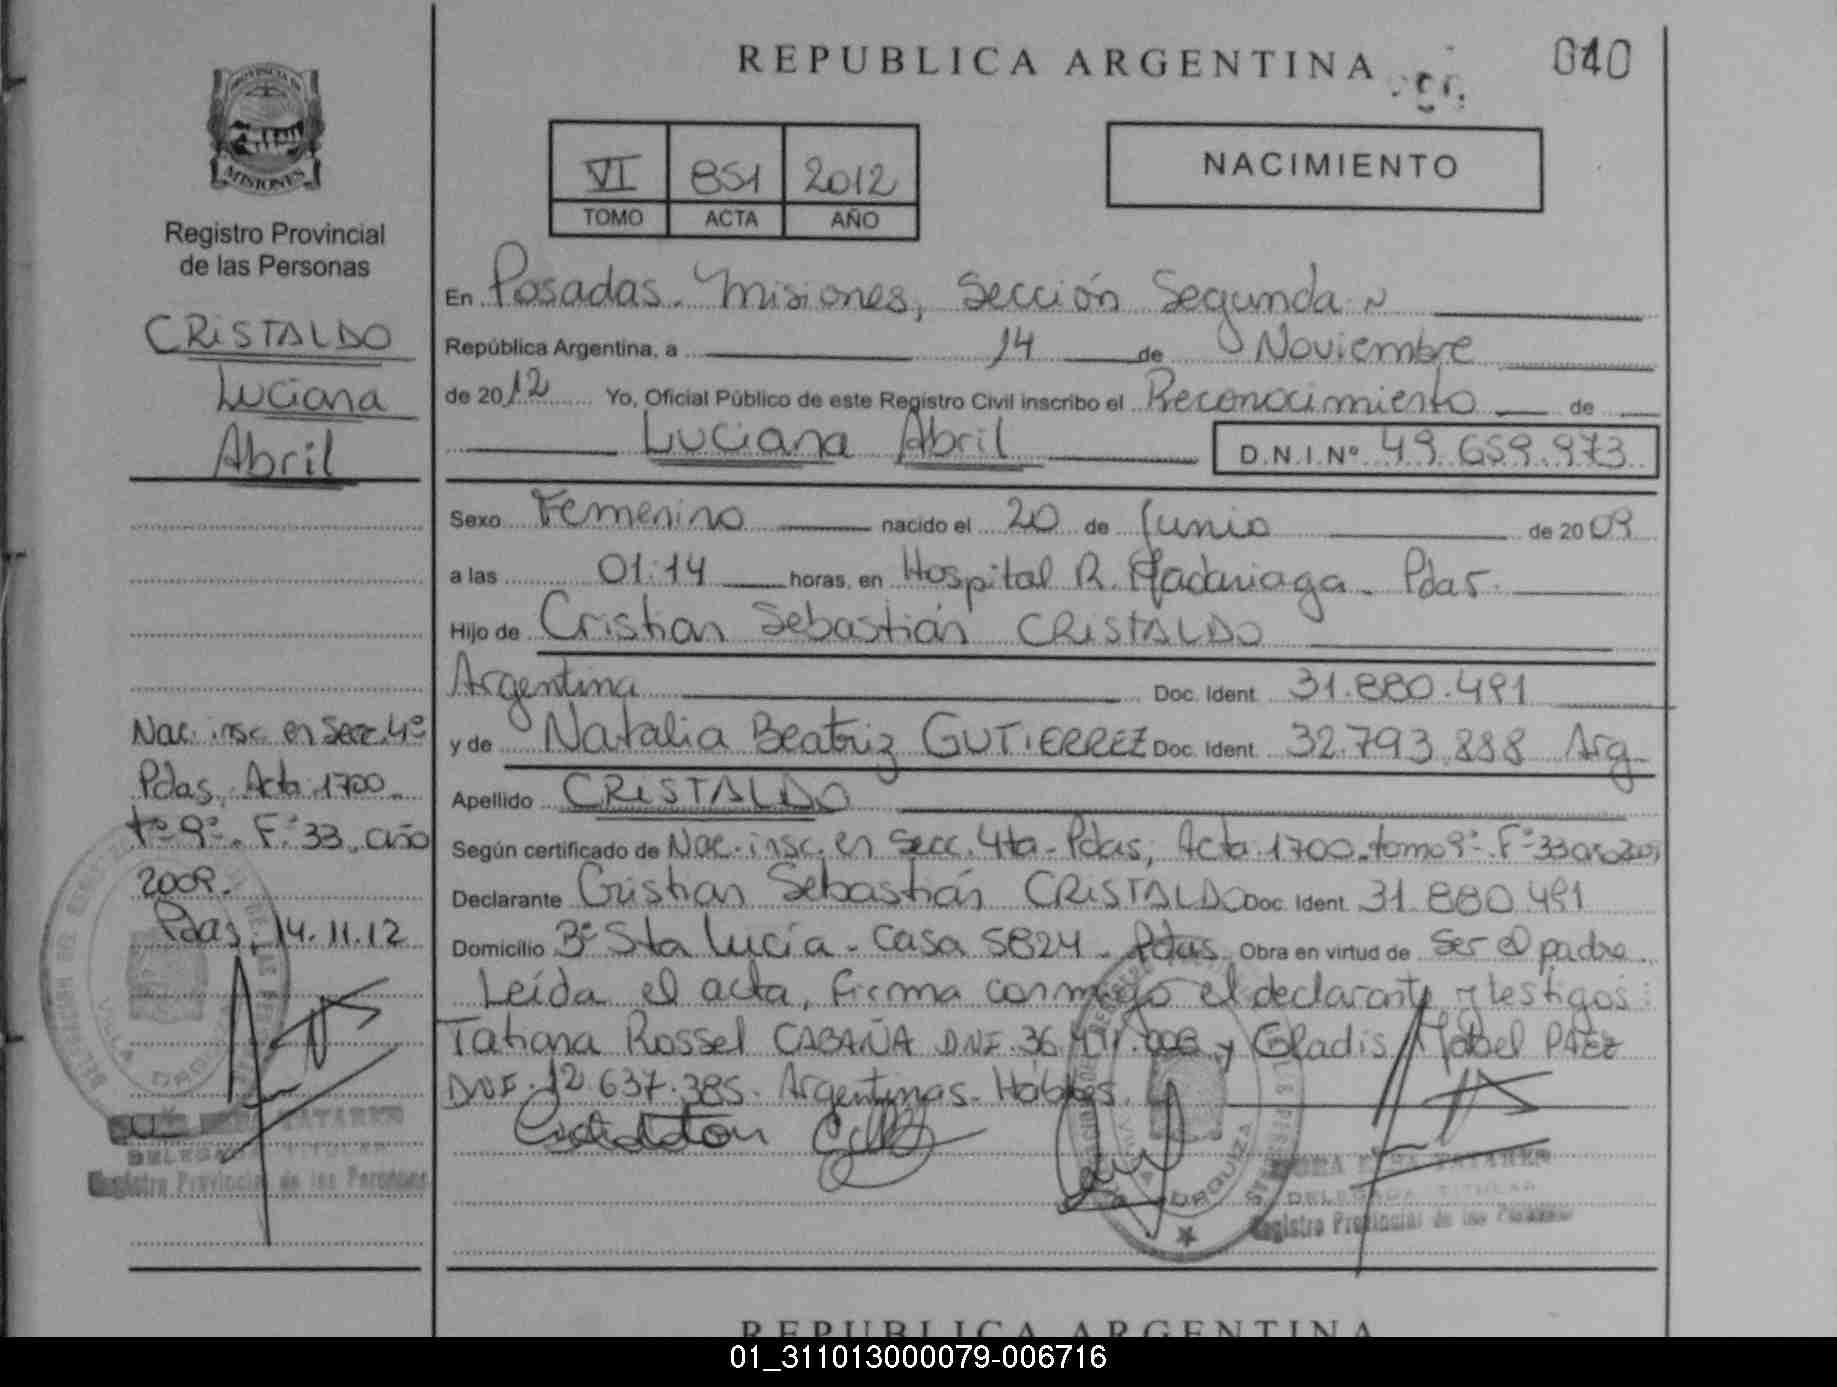 REPUBLICA ARGENTINA
040
PROVINCIA DE
MISIONES
Registro Provincial
de las Personas
CRISTALDO
Luciana
Abril
VI 851 2012
TOMO ACTA AÑO
NACIMIENTO
En Posadas. Misiones, Sección Segunda
República Argentina, a 14 de Noviembre
de 2012 Yo, Oficial Público de este Registro Civil inscribo el Reconocimiento de
Luciana Abril D.N.I.Nº 49.659.973
Sexo Femenino nacido el 20 de Junio de 2009
a las 01:14 horas, en Hospital R. Madariaga. Pdas.
Hijo de Cristian Sebastián CRISTALDO
Argentina Doc. Ident. 31.880.491
y de Natalia Beatriz GUTIERREZ Doc. Ident. 32.793.888 Arg
Apellido CRISTALDO
Según certificado de Nac. insc. en Secc. 4ta. Pdas, Acta 1700. tomo 9º. Fº 33
Declarante Cristian Sebastián CRISTALDO Doc. Ident. 31.880.491
Domicilio Bº Sta Lucía - Casa 5824. Pdas. Obra en virtud de ser el padre.
Leída el acta, firma conmigo el declarante y testigos:
Tatiana Rossel CABAÑA DNI. 36. y Gladis Mabel PAEZ
DNI. 12.637.385. Argentinas. Hábiles.
Nac. insc. en Secc. 4º
Pdas, Acta 1700.
tº 9º. Fº 33. año
2009.
Pdas, 14.11.12
VILLA URQUIZA
TATAREN
DELEGADA TITULAR
Registro Provincial de las Personas
VILLA URQUIZA
TATAREN
DELEGADA TITULAR
Registro Provincial de las Personas
REPUBLICA ARGENTINA
01_311013000079-006716